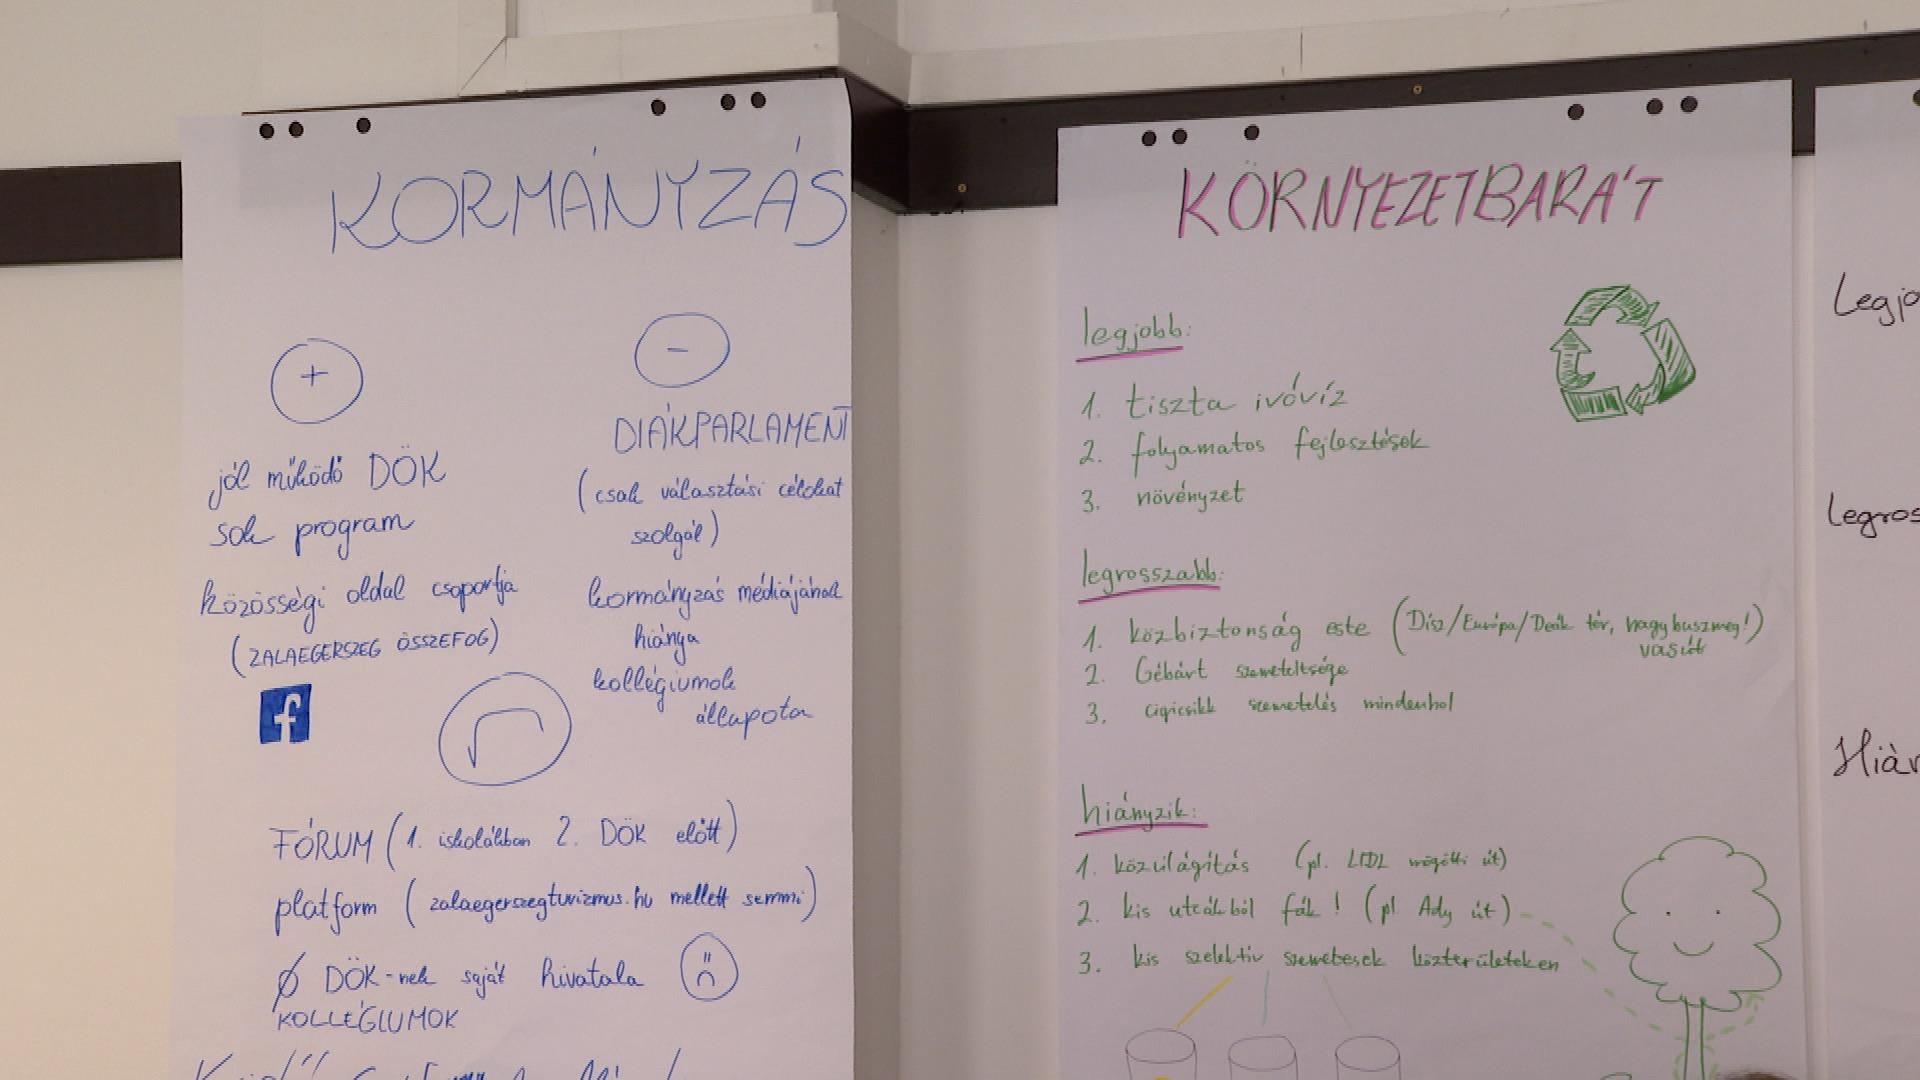 KORMÁNYZÁS
+
jól működő DÖK
sok program
közösségi oldal csoportja
(ZALAEGERSZEG ÖSSZEFOG)
f
-
DIÁKPARLAMENT
(csak választási célokat
szolgál)
kormányzás médiájának
hiánya
kollégiumok
állapota
FÓRUM (1. iskolákban 2. DÖK előtt)
platform (zalaegerszegturizmus.hu mellett semmi)
Ø DÖK-nek saját hivatala
KOLLÉGIUMOK
KÖRNYEZETBARÁT
legjobb:
1. tiszta ivóvíz
2. folyamatos fejlesztések
3. növényzet
legrosszabb:
1. közbiztonság este (Dísz/Európa/Deák tér, nagybuszmeg!)
vasút
2. Gébárt szemeteltsége
3. cigicsikk szemetelés mindenhol
hiányzik:
1. közvilágítás (pl. LIDL mögötti út)
2. kis utcákból fák! (pl Ady út)
3. kis szelektív szemetesek közterületeken
Legjo
Legros
Hián